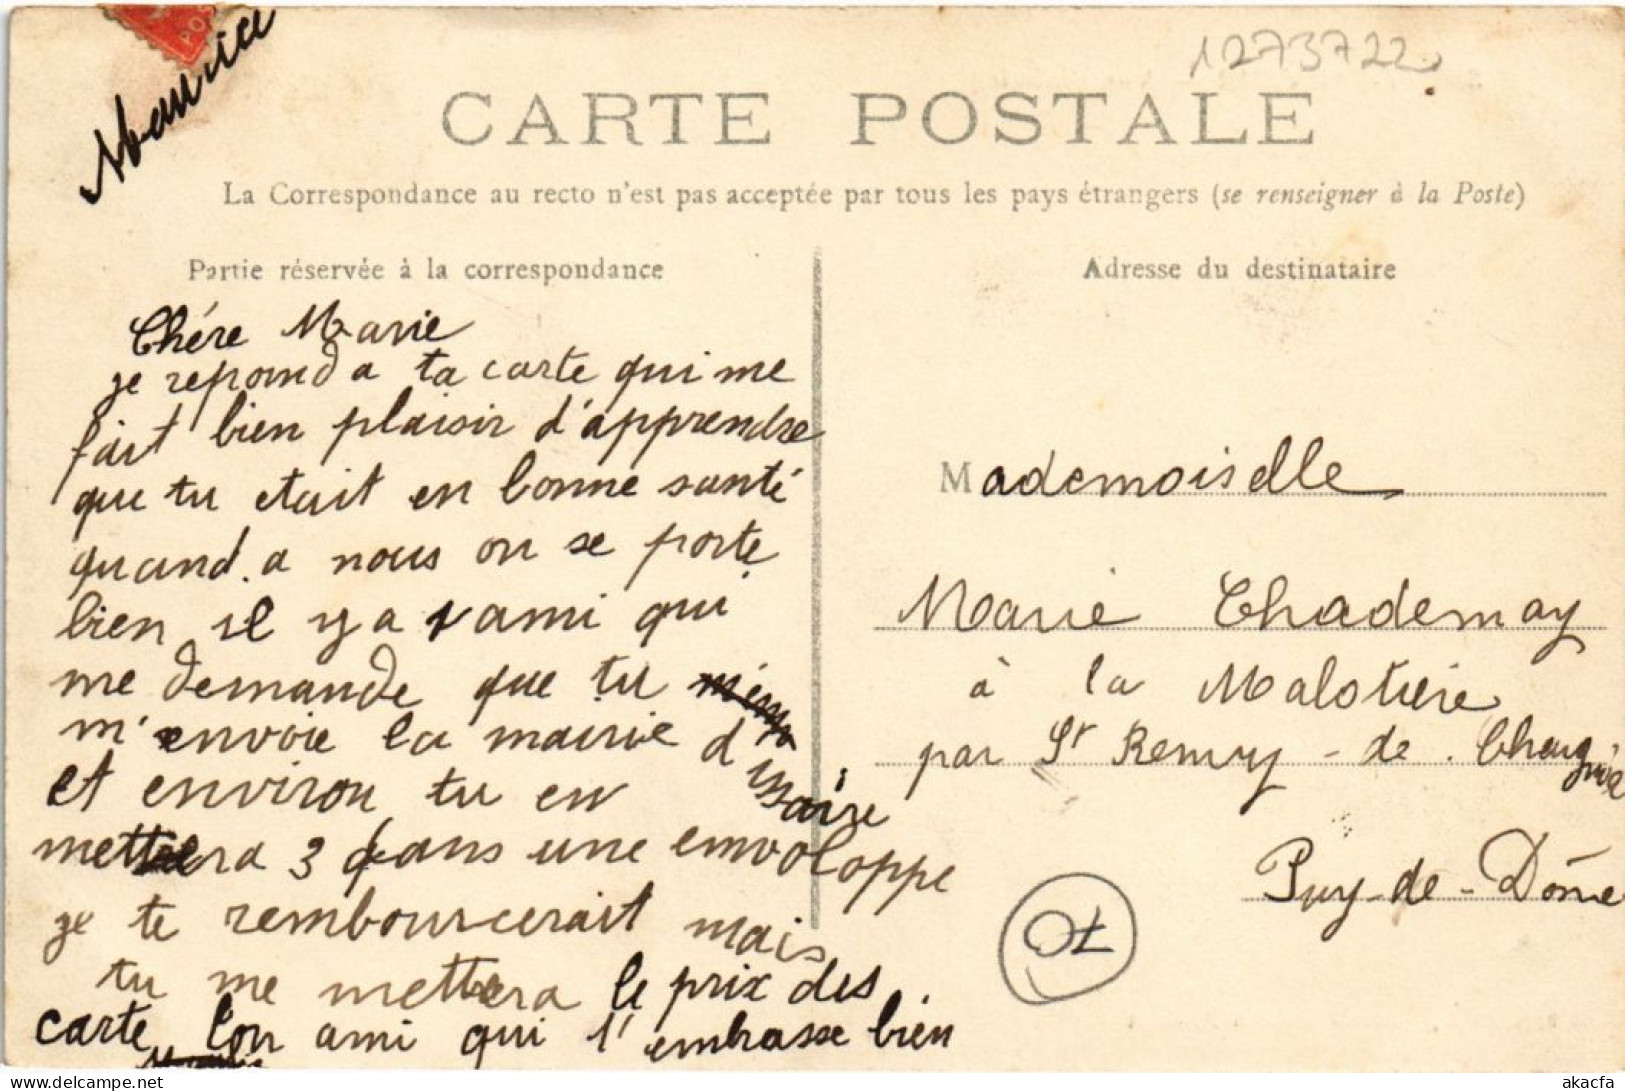 POS
Maurice
1273722
CARTE POSTALE
La Correspondance au recto n'est pas acceptée par tous les pays étrangers (se renseigner à la Poste)
Partie réservée à la correspondance
Chére Marie
je repond a ta carte qui me
fait bien plaisir d'apprendre
que tu etait en bonne santé
quand a nous on se porte
bien il y a 1 ami qui
me demande que tu
m'envoie la mairie d'issaire
et environ tu en
mettera 3 dans une enveloppe
je te rembourcerait mais
tu me mettera le prix des
carte ton ami qui t'embrasse bien
Adresse du destinataire
Mademoiselle
Marie Chademay
à la Malotiére
par St Remy-de-Chargnat
Puy-de-Dôme
70
delcampe.net
akacfa